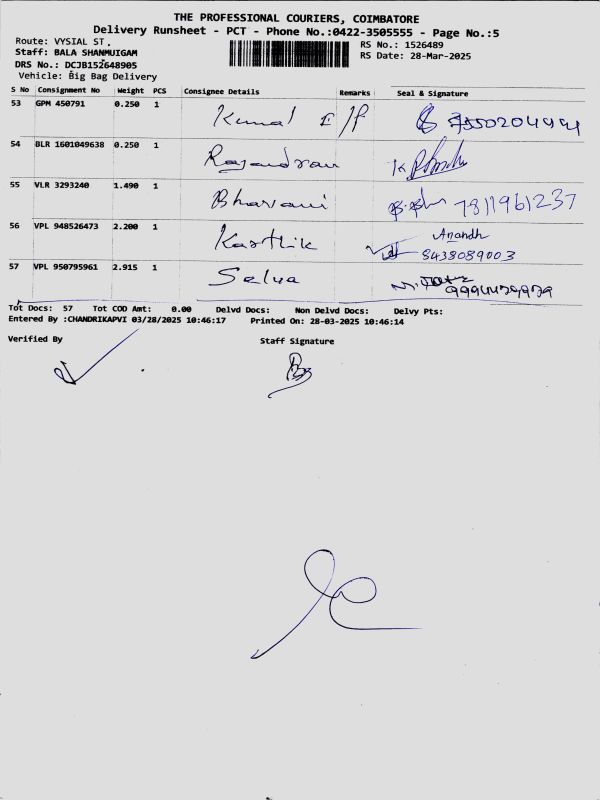 THE PROFESSIONAL COURIERS, COIMBATORE
Delivery Runsheet - PCT - Phone No.:0422-3505555 - Page No.:5
Route: VYSIAL ST,
RS No.: 1526489
Staff: BALA SHANMUIGAM
RS Date: 28-Mar-2025
DRS No.: DCJB152648905
Vehicle: Big Bag Delivery
S No Consignment No Weight PCS Consignee Details Remarks Seal & Signature
53 GPM 450791 0.250 1 Kumal E/P
54 BLR 1601049638 0.250 1 Rajandran
55 VLR 3293240 1.490 1 Bharani 7811961237
56 VPL 948526473 2.200 1 Karthik Anandh
8438089003
57 VPL 950795961 2.915 1 Selva
Tot Docs: 57 Tot COD Amt: 0.00 Delvd Docs: Non Delvd Docs: Delvy Pts:
Entered By :CHANDRIKAPVI 03/28/2025 10:46:17 Printed On: 28-03-2025 10:46:14
Verified By Staff Signature